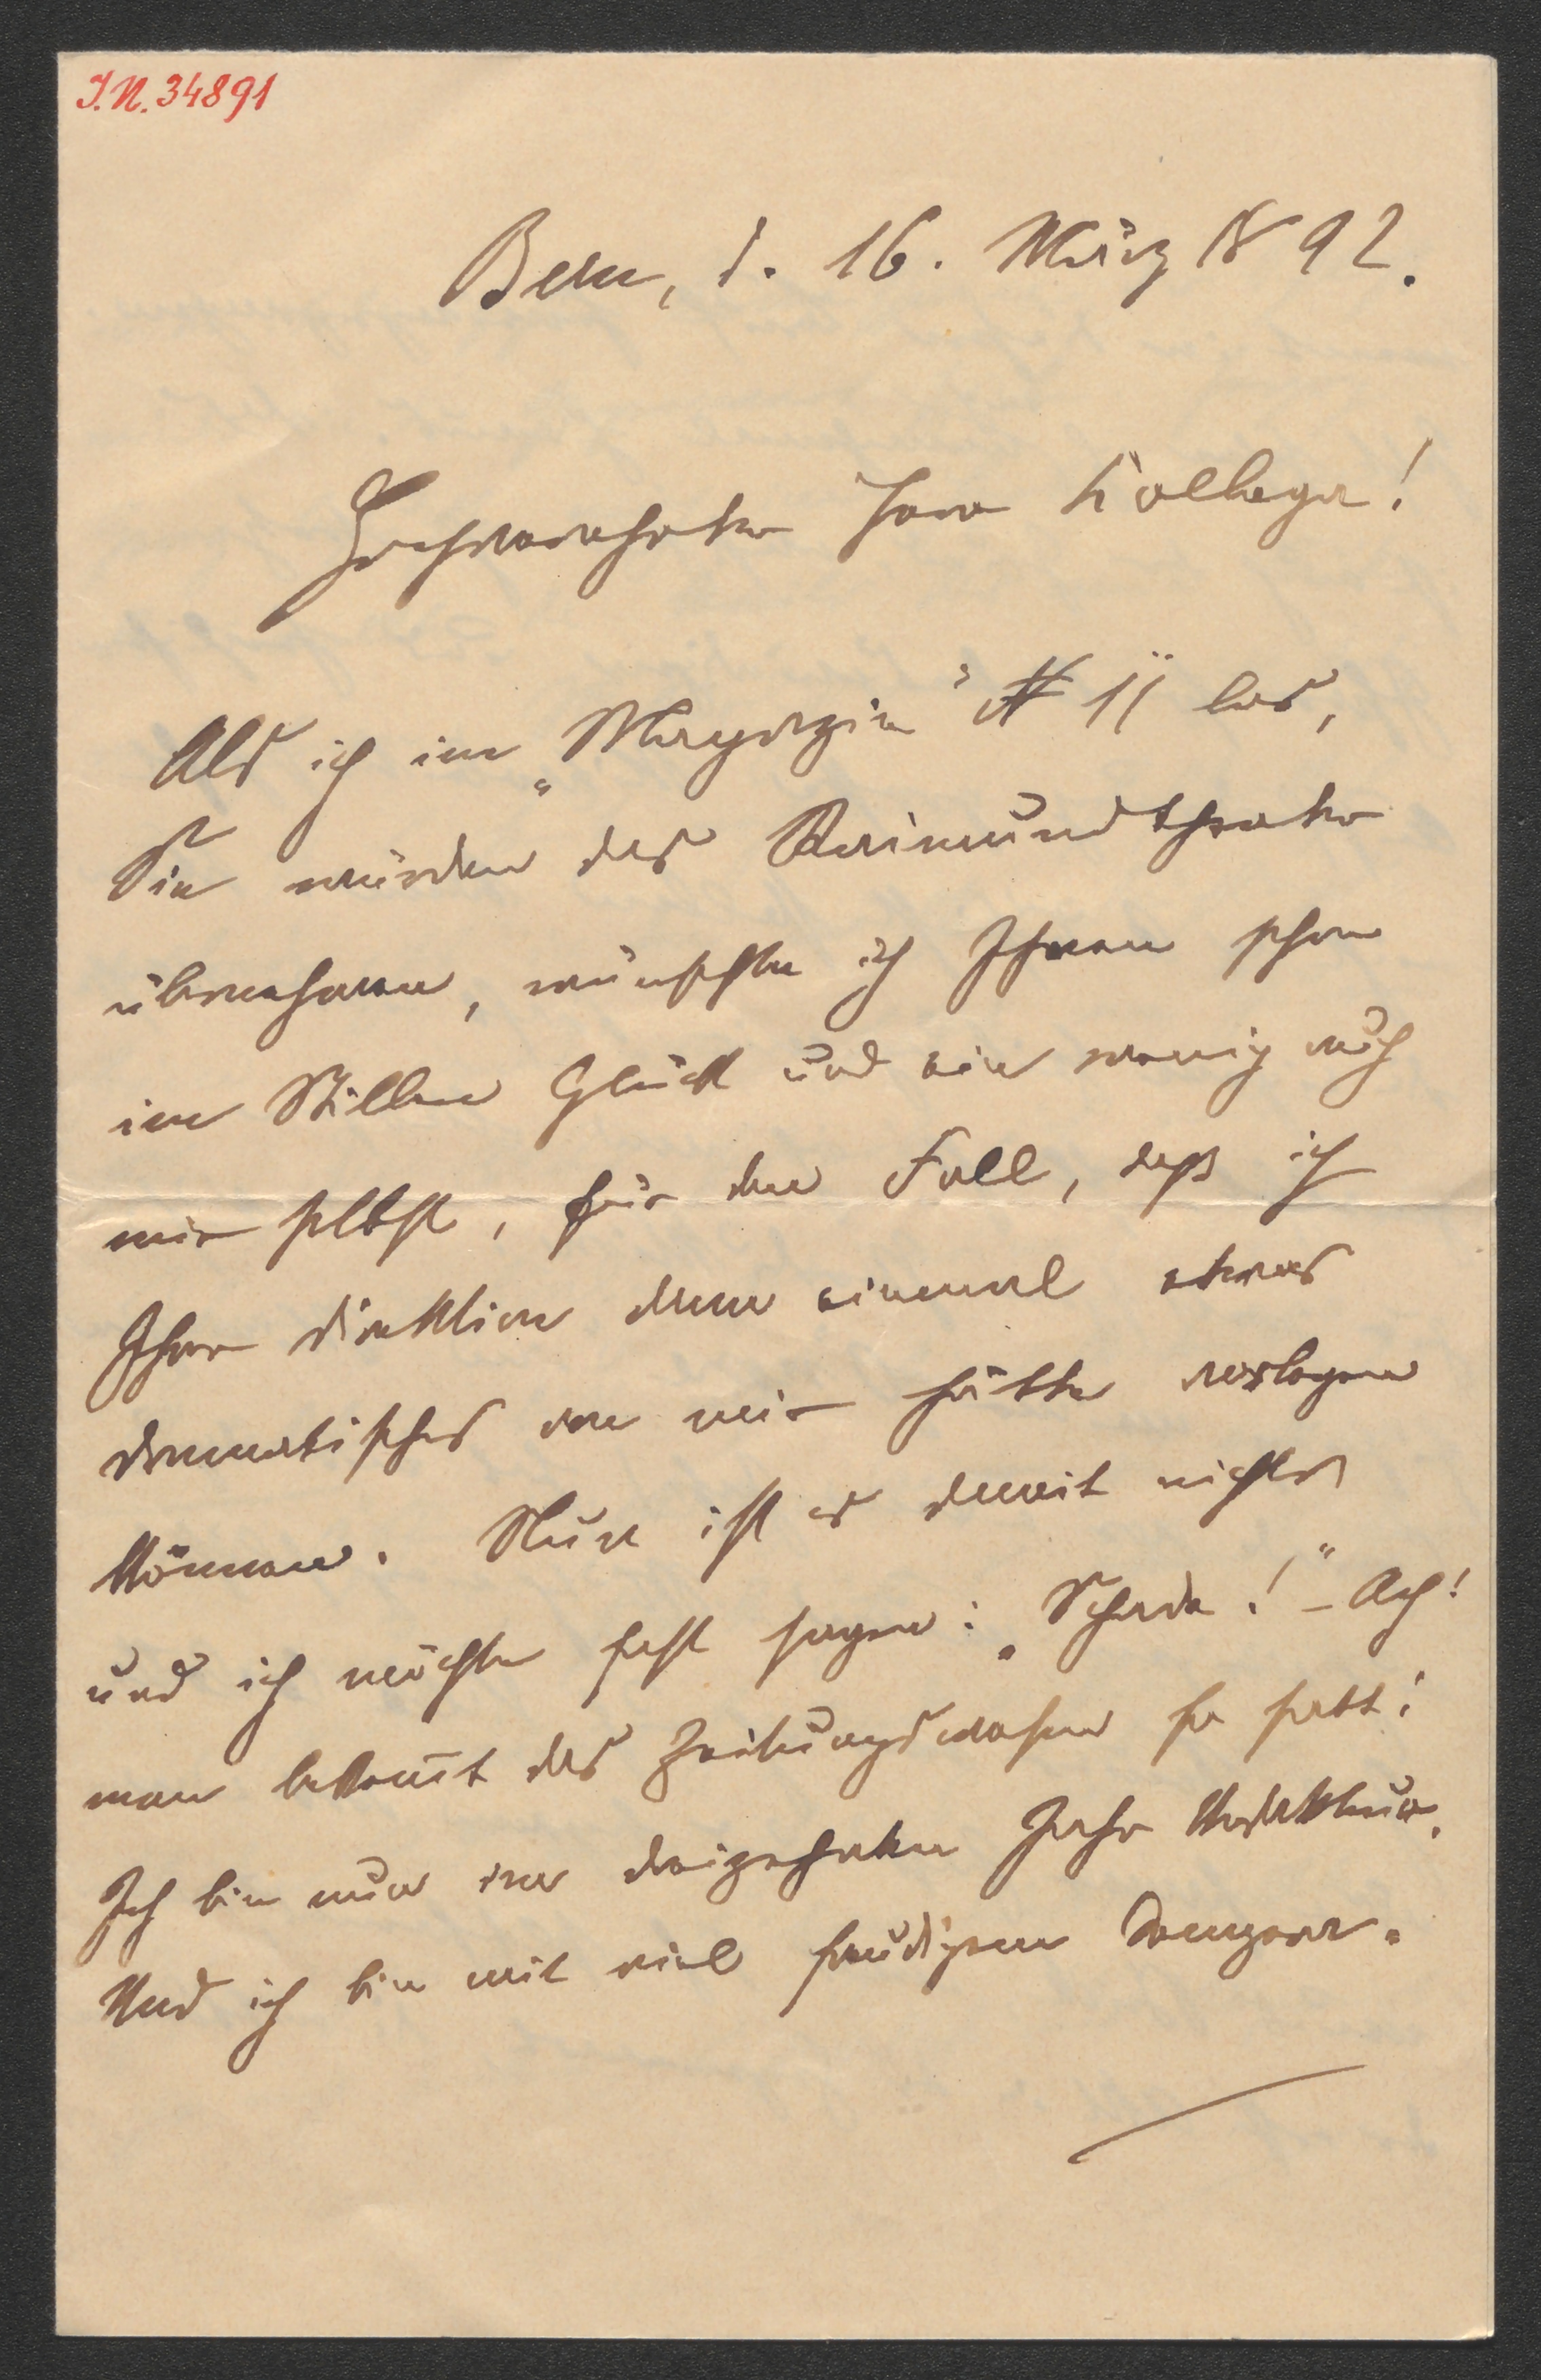 I.N. 34891
Bern, d. 16. März 1892.
Hochverehrter Herr Kollega!
Als ich im „Magazin“ № 11 las,
Sie würden das Raimundtheater
übernehmen, wünschte ich Ihnen schon
im Stillen Glück und ein wenig auch
mir selbst, für den Fall, daß ich
Ihrer Direktion dann einmal etwas
dramatisches von mir hätte vorlegen
können. Nun ist es damit nichts
und ich möchte fast sagen: „Schade!“ – Ach!
man bekom̅t das Zeitungswesen so satt!
Ich bin nun im dreizehnten Jahr Redakteur.
Und ich bin mit viel freudigem